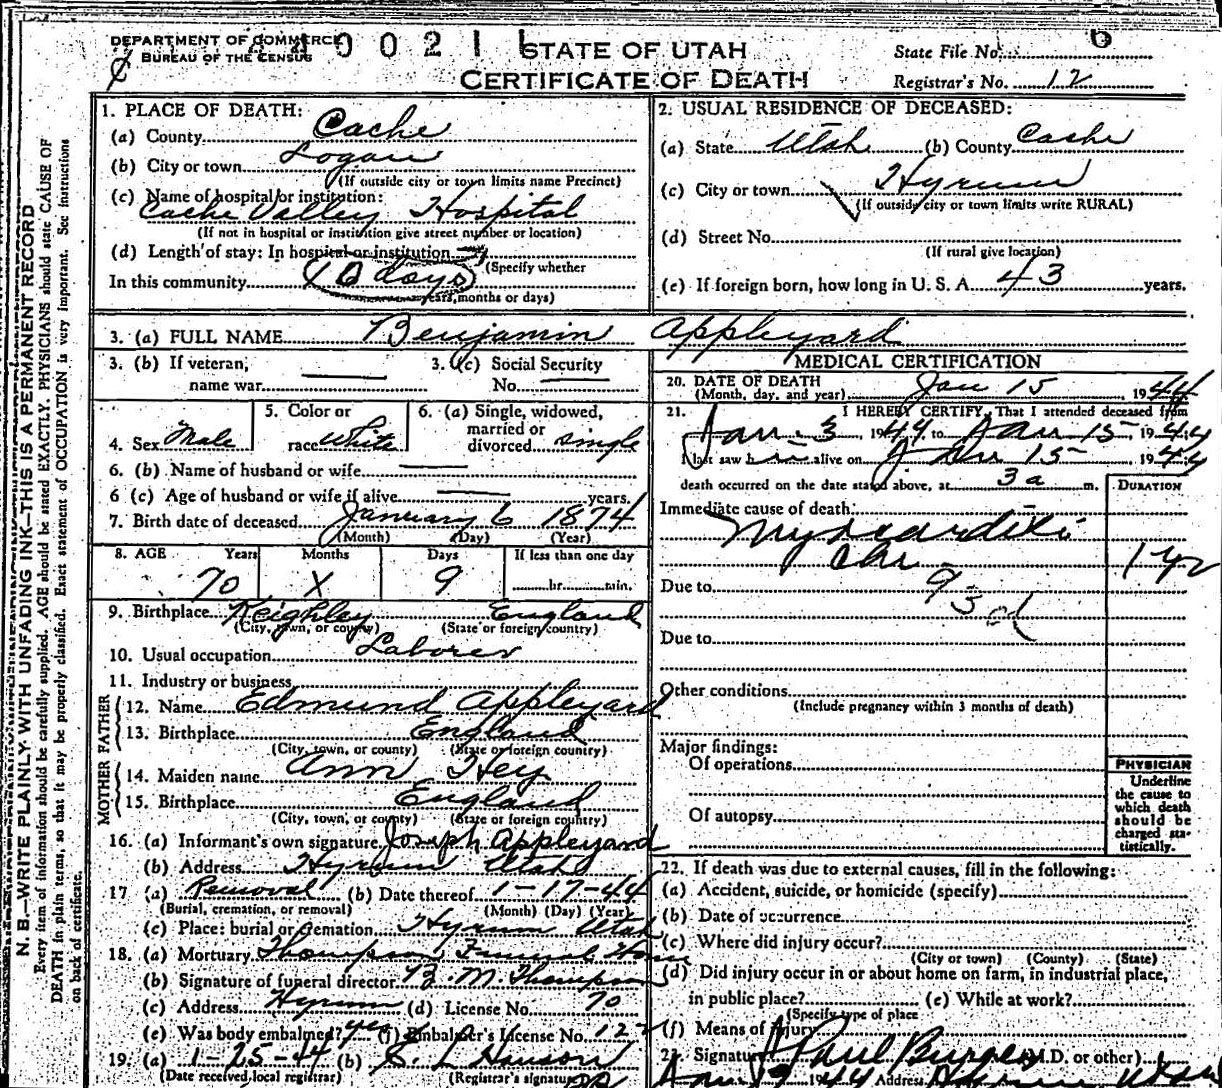 DEPARTMENT OF COMMERCE
BUREAU OF THE CENSUS
0 0 2 1 1
STATE OF UTAH
CERTIFICATE OF DEATH
State File No. 6
Registrar's No. 12
N. B.—WRITE PLAINLY WITH UNFADING INK—THIS IS A PERMANENT RECORD
Every item of information should be carefully supplied. AGE should be stated EXACTLY. PHYSICIANS should state CAUSE OF
DEATH in plain terms, so that it may be properly classified. Exact statement of OCCUPATION is very important. See instructions
on back of certificate.
1. PLACE OF DEATH:
(a) County Cache
(b) City or town Logan
(If outside city or town limits name Precinct)
(c) Name of hospital or institution:
Cache Valley Hospital
(If not in hospital or institution give street number or location)
(d) Length of stay: In hospital or institution
(Specify whether
In this community 10 days
years, months or days)
2. USUAL RESIDENCE OF DECEASED:
(a) State Utah (b) County Cache
(c) City or town Hyrum
(If outside city or town limits write RURAL)
(d) Street No.
(If rural give location)
(e) If foreign born, how long in U. S. A. 43 years.
3. (a) FULL NAME Benjamin Appleyard
3. (b) If veteran,
name war
3. (c) Social Security
No.
4. Sex Male
5. Color or
race White
6. (a) Single, widowed,
married or
divorced single
6. (b) Name of husband or wife
6 (c) Age of husband or wife if alive years.
7. Birth date of deceased January 6 1874
(Month) (Day) (Year)
8. AGE Years Months Days If less than one day
70 X 9 hr. min.
9. Birthplace Keighley England
(City, town, or county) (State or foreign country)
10. Usual occupation Laborer
11. Industry or business
FATHER
12. Name Edmund Appleyard
13. Birthplace England
(City, town, or county) (State or foreign country)
MOTHER
14. Maiden name Ann Hey
15. Birthplace England
(City, town, or county) (State or foreign country)
16. (a) Informant's own signature Joseph Appleyard
(b) Address Hyrum Utah
17 (a) Removal (b) Date thereof 1-17-44
(Burial, cremation, or removal) (Month) (Day) (Year)
(c) Place: burial or cremation Hyrum Utah
18. (a) Mortuary Thompson Funeral Home
(b) Signature of funeral director B. M. Thompson
(c) Address Hyrum (d) License No. 70
(e) Was body embalmed? yes (f) Embalmer's License No. 122
19. (a) 1-25-44 (b)
(Date received local registrar) (Registrar's signature)
MEDICAL CERTIFICATION
20. DATE OF DEATH
(Month, day, and year) Jan 15, 1944
21. I HEREBY CERTIFY, That I attended deceased from
Jan. 3, 1944 to Jan 15, 1944
I last saw him alive on Jan 15 1944
death occurred on the date stated above, at 3 a m.
DURATION
Immediate cause of death:
Myocarditis
chr 1 yr
Due to 93d
Due to
Other conditions
(Include pregnancy within 3 months of death)
Major findings:
Of operations
Of autopsy
PHYSICIAN
Underline
the cause to
which death
should be
charged sta-
tistically.
22. If death was due to external causes, fill in the following:
(a) Accident, suicide, or homicide (specify)
(b) Date of occurrence
(c) Where did injury occur?
(City or town) (County) (State)
(d) Did injury occur in or about home on farm, in industrial place,
in public place? (e) While at work?
(Specify type of place
(f) Means of Injury
Signature Paul Burgess (M.D. or other)
1944 Address Hyrum Utah